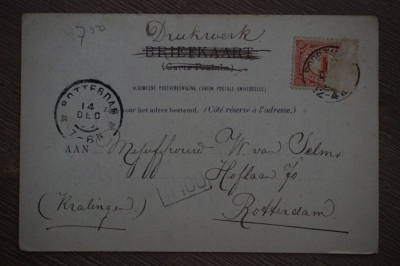 3700
Drukwerk
BRIEFKAART
(Carte Postale)
ALGEMEENE POSTVEREENIGING (UNION POSTALE UNIVERSELLE)
voor het adres bestemd. (Côté réservé à l'adresse.)
ROTTERDAM
14
DEC
7-8N
12-4
AAN Mejuffrouw W van Selms
Hoflaan 70
(Kralingen)
Rotterdam.